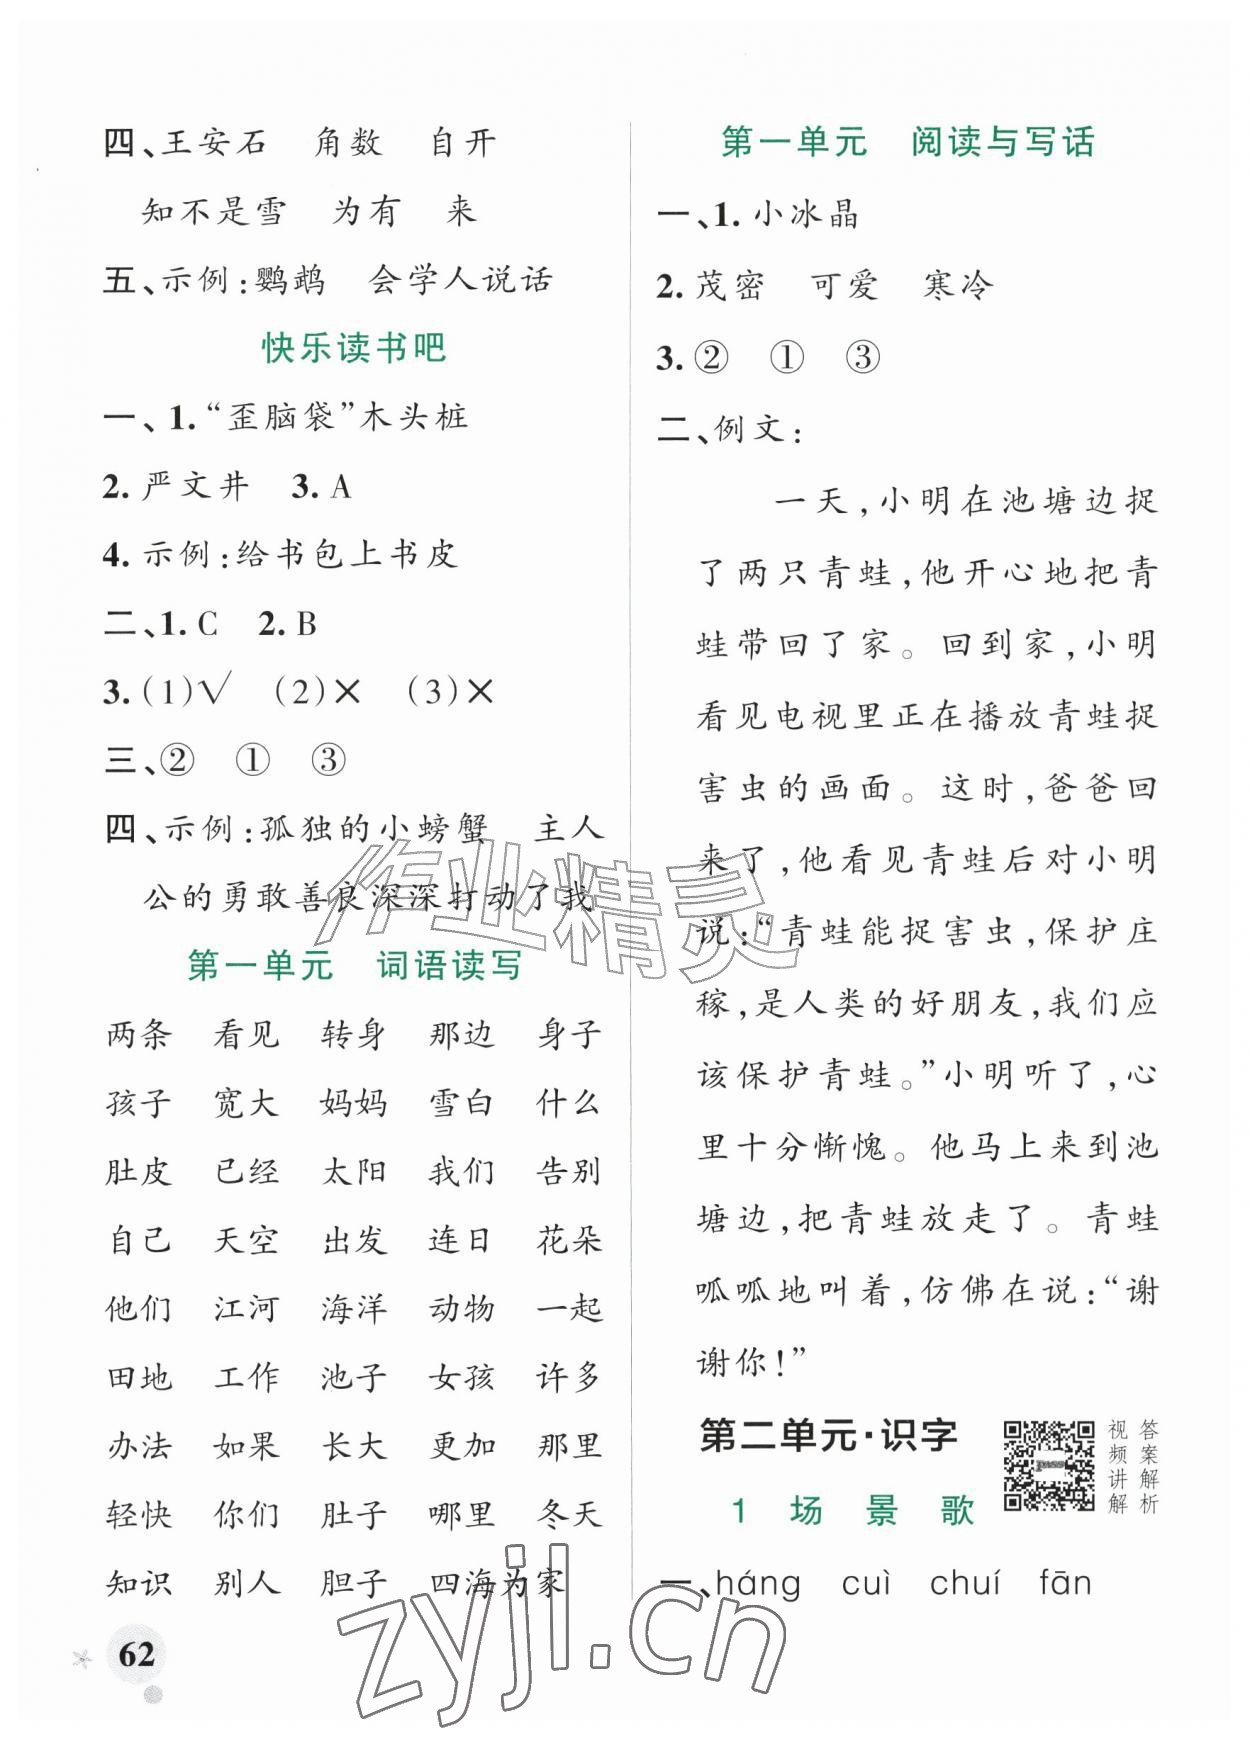 四、王安石　角数　自开
知不是雪　为有　来
五、示例:鹦鹉　会学人说话
快乐读书吧
一、1.“歪脑袋”木头桩
2.严文井　3.A
4.示例:给书包上书皮
二、1.C　2.B
3.(1)√　(2)×　(3)×
三、②　①　③
四、示例:孤独的小螃蟹　主人
公的勇敢善良深深打动了我
第一单元　词语读写
两条　看见　转身　那边　身子
孩子　宽大　妈妈　雪白　什么
肚皮　已经　太阳　我们　告别
自己　天空　出发　连日　花朵
他们　江河　海洋　动物　一起
田地　工作　池子　女孩　许多
办法　如果　长大　更加　那里
轻快　你们　肚子　哪里　冬天
知识　别人　胆子　四海为家
62
第一单元　阅读与写话
一、1.小冰晶
2.茂密　可爱　寒冷
3.②　①　③
二、例文:
一天,小明在池塘边捉
了两只青蛙,他开心地把青
蛙带回了家。回到家,小明
看见电视里正在播放青蛙捉
害虫的画面。这时,爸爸回
来了,他看见青蛙后对小明
说:“青蛙能捉害虫,保护庄
稼,是人类的好朋友,我们应
该保护青蛙。”小明听了,心
里十分惭愧。他马上来到池
塘边,把青蛙放走了。青蛙
呱呱地叫着,仿佛在说:“谢
谢你!”
第二单元·识字
答案解析
视频讲解
1　场　景　歌
一、háng　cuì　chuí　fān
作业精灵
zyjl.cn